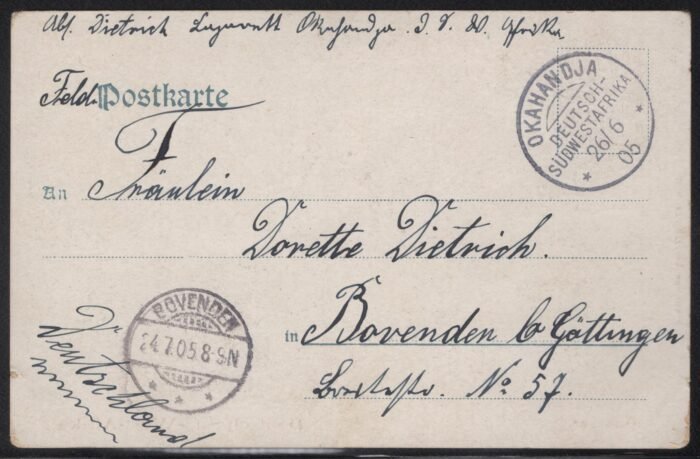 Abs. Dietrich Lazarett Okahandja. D. S. W. Afrika
Feld Postkarte
OKAHANDJA
DEUTSCH-
SÜDWESTAFRIKA
26/6
05
An Fräulein
Dorette Dietrich.
BOVENDEN
24.7.05 8-9N
in Bovenden b Göttingen
No 57.
Deutschland